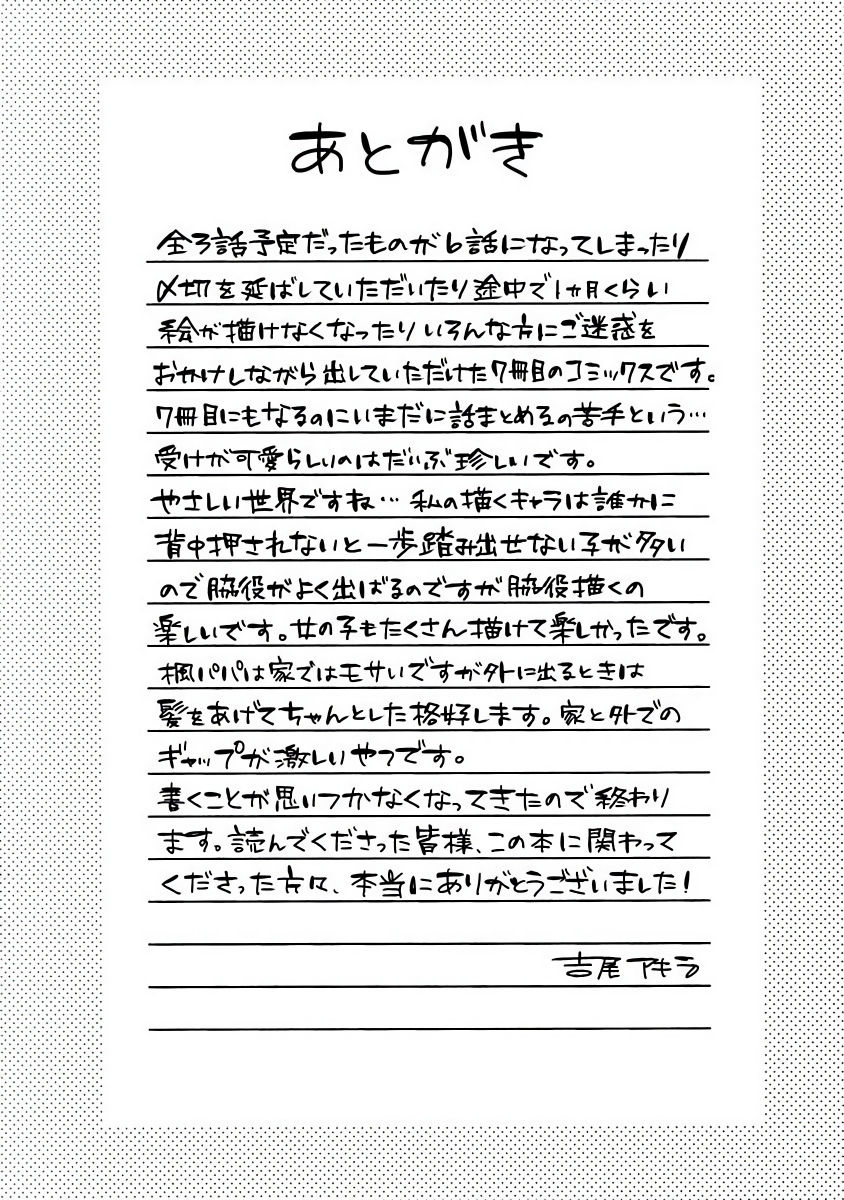 あとがき
全3話予定だったものが6話になってしまったり
〆切を延ばしていただいたり途中で1ヵ月くらい
絵が描けなくなったりいろんな方にご迷惑を
おかけしながら出していただけた7冊目のコミックスです。
7冊目にもなるのにいまだに話まとめるの苦手という…
受けが可愛らしいのはだいぶ珍しいです。
やさしい世界ですね…私の描くキャラは誰かに
背中押されないと一歩踏み出せない子が多い
ので脇役がよく出ばるのですが脇役描くの
楽しいです。女の子もたくさん描けて楽しかったです。
楓パパは家ではモサいですが外に出るときは
髪をあげてちゃんとした格好します。家と外での
ギャップが激しいやつです。
書くことが思いつかなくなってきたので終わり
ます。読んでくださった皆様、この本に関わって
くださった方々、本当にありがとうございました!
吉尾アキラ